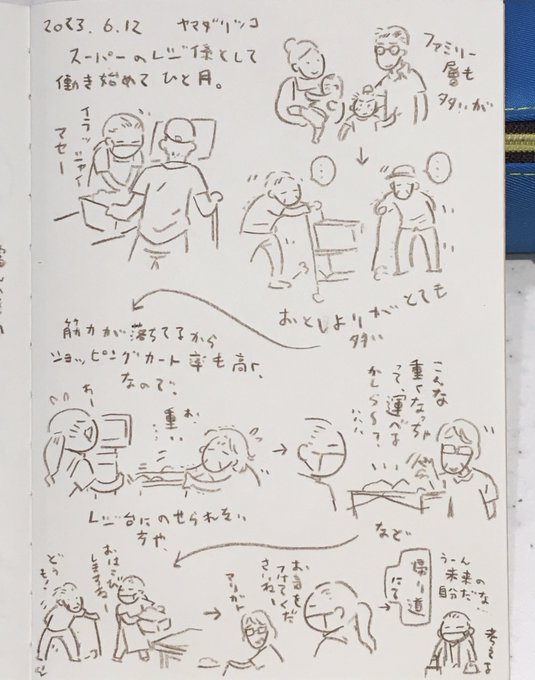 2023.6.12 ヤマダリツコ
スーパーのレジ係として
働き始めて ひと月。
イラッシャイ
マセー
ファミリー
層も
多いが
おとしよりがとても
多い
筋力が落ちてるから
ショッピングカート率も高く、
なので、
わー
重…
レジ台にのせられない
ちゃ、
こんな
重くなっちゃ
って、運べる
かしらー?
など
どうもー
おはこび
しますねー
アリガトー
お気を
つけてくだ
さいねー
帰り道
にて
うーん
未来の
自分だな…
考える